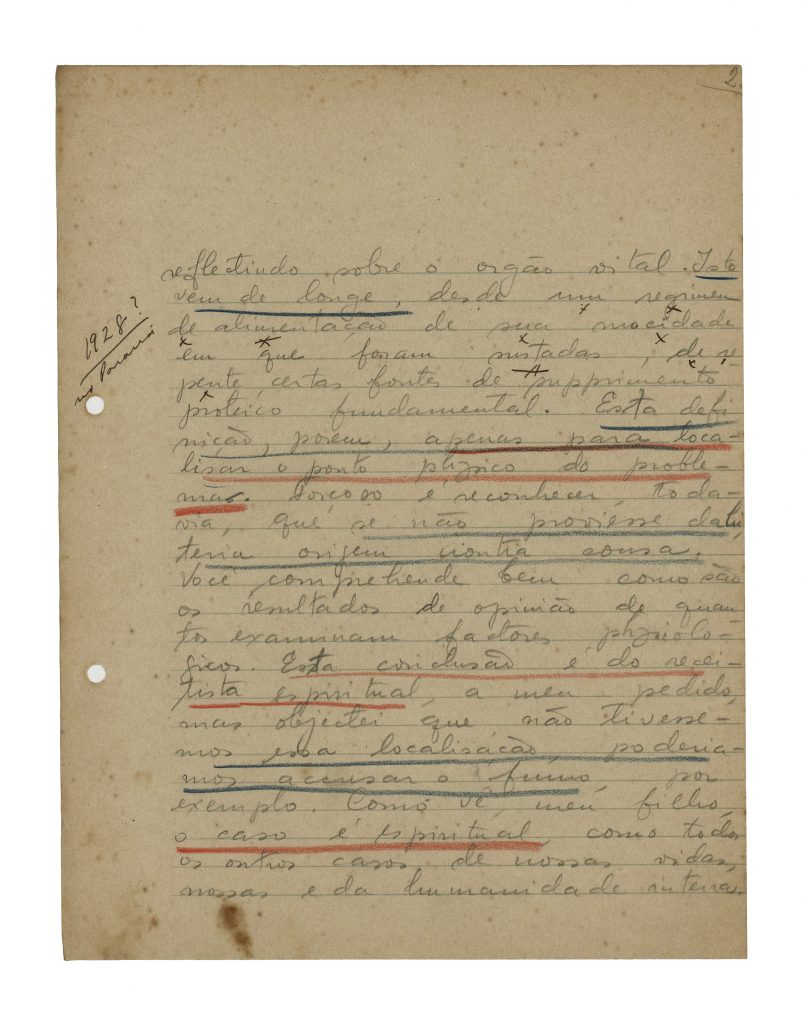 2
reflectindo sobre o orgão vital. Isto
vem de longe, desde um regimen
de alimentação de sua mocidade
em que foram sustadas, de re-
pente certas fontes de supprimento
proteico fundamental. Esta defi
nição, porem, apenas para loca-
lisar o ponto physico do proble-
ma. Forçoso é reconhecer, toda-
via, que se não proviesse dahi,
teria origem noutra cousa.
Você comprehende bem como são
os resultados de opinião de quan
tos examinam factores physiolo-
gicos. Esta conclusão é do recei-
tista espiritual, a meu pedido,
mas objectei que não tivesse-
mos essa localisação, poderia-
mos accusar o fumo, por
exemplo. Como vê, meu filho,
o caso é espiritual, como todos
os outros casos de nossas vidas,
nossas e da humanidade inteira.
1928?
no Paraná